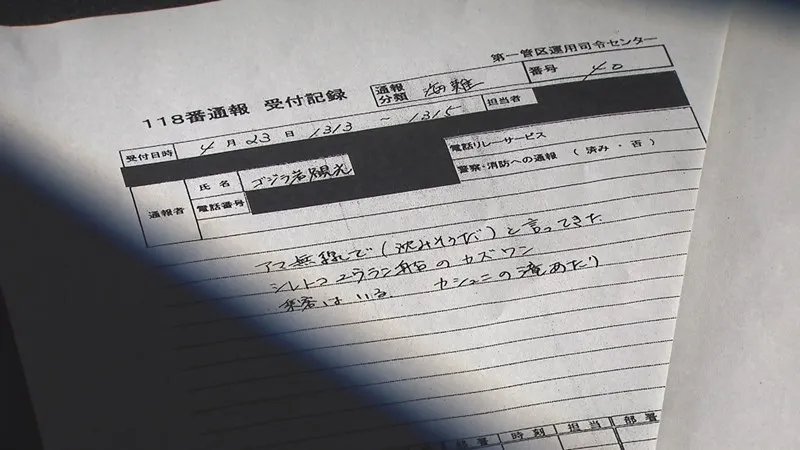 第一管区運用司令センター
118番通報 受付記録 通報分類 海難 番号 40
受付日時 4月23日 1313 ~ 1315 担当者
電話リレーサービス
通報者 氏名 ゴジラ岩観光 警察・消防への通報 (済み・否)
電話番号
アマ無線で(沈みそうだ)と言ってきた
シレトコユウラン船のカズワン
乗客はいる カシュニの滝あたり
部署 時刻 担当 部署